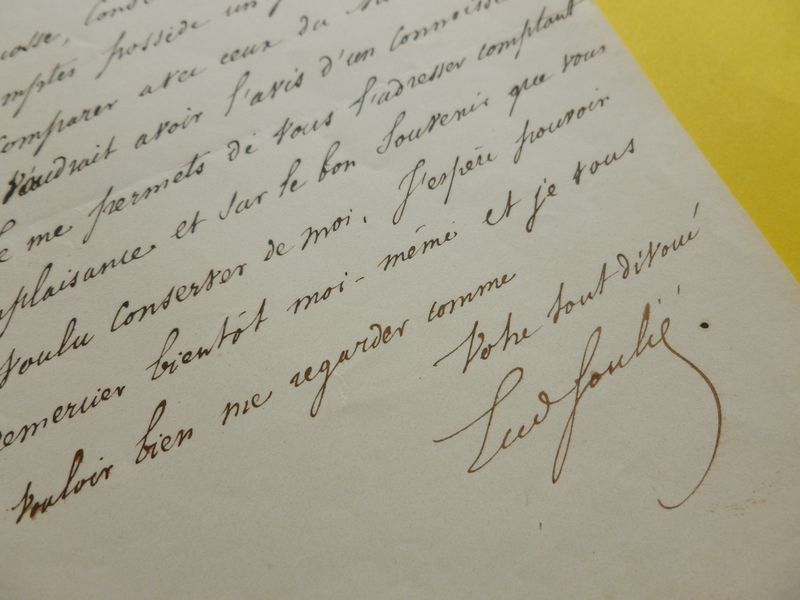 comparer avec ceux du
Voudrait avoir l'avis d'un connoiss
me permets de vous l'adresser comptant
plaisance et sur le bon souvenir que vous
voulu conserver de moi. J'espère pouvoir
remercier bientôt moi-même et je vous
vouloir bien me regarder comme
Votre tout dévoué
Lud Soulié.